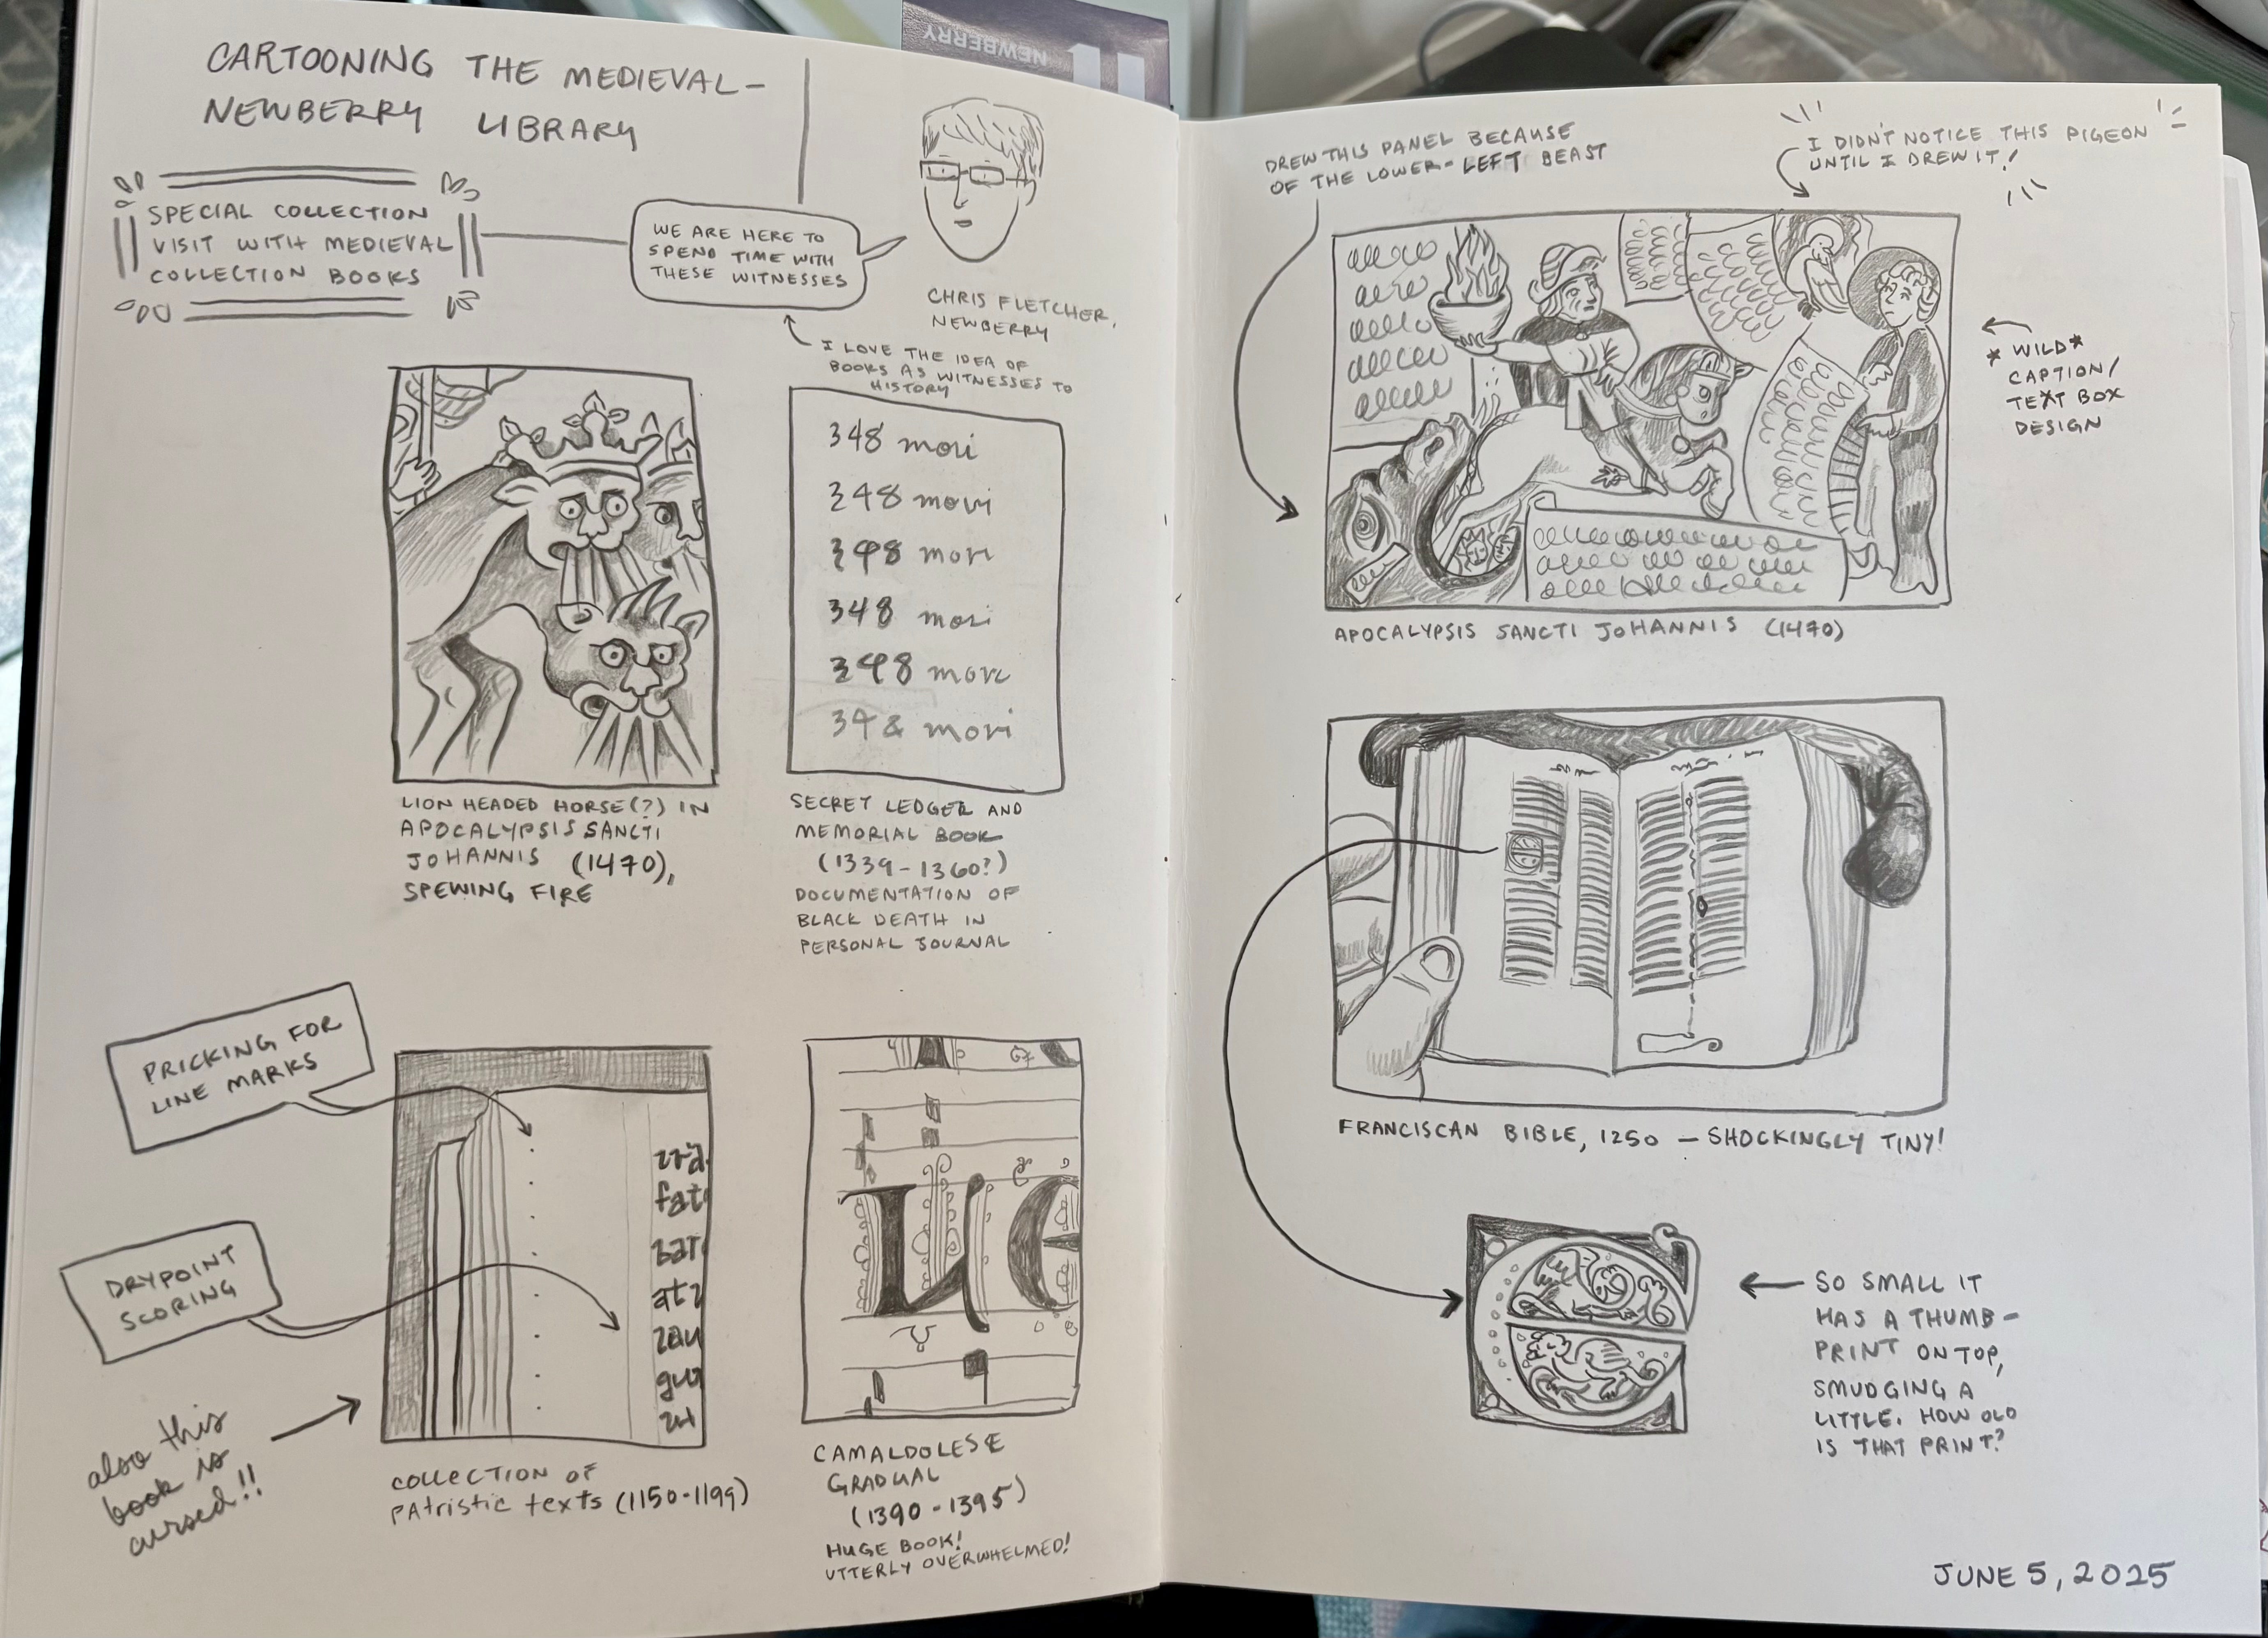 NEWBERRY
CARTOONING THE MEDIEVAL-
NEWBERRY LIBRARY
SPECIAL COLLECTION
VISIT WITH MEDIEVAL
COLLECTION BOOKS
WE ARE HERE TO
SPEND TIME WITH
THESE WITNESSES
CHRIS FLETCHER,
NEWBERRY
I LOVE THE IDEA OF
BOOKS AS WITNESSES TO
HISTORY
LION HEADED HORSE(?) IN
APOCALYPSIS SANCTI
JOHANNIS (1470),
SPEWING FIRE
348 mori
348 mori
348 mori
348 mori
348 mori
348 mori
SECRET LEDGER AND
MEMORIAL BOOK
(1339-1360?)
DOCUMENTATION OF
BLACK DEATH IN
PERSONAL JOURNAL
PRICKING FOR
LINE MARKS
DRYPOINT
SCORING
also this
book is
cursed!!
COLLECTION OF
PATRISTIC TEXTS (1150-1199)
ue
CAMALDOLESE
GRADUAL
(1390-1395)
HUGE BOOK!
UTTERLY OVERWHELMED!
DREW THIS PANEL BECAUSE
OF THE LOWER-LEFT BEAST
I DIDN'T NOTICE THIS PIGEON
UNTIL I DREW IT!
*WILD*
CAPTION/
TEXT BOX
DESIGN
APOCALYPSIS SANCTI JOHANNIS (1470)
FRANCISCAN BIBLE, 1250 — SHOCKINGLY TINY!
SO SMALL IT
HAS A THUMB-
PRINT ON TOP,
SMUDGING A
LITTLE. HOW OLD
IS THAT PRINT?
JUNE 5, 2025